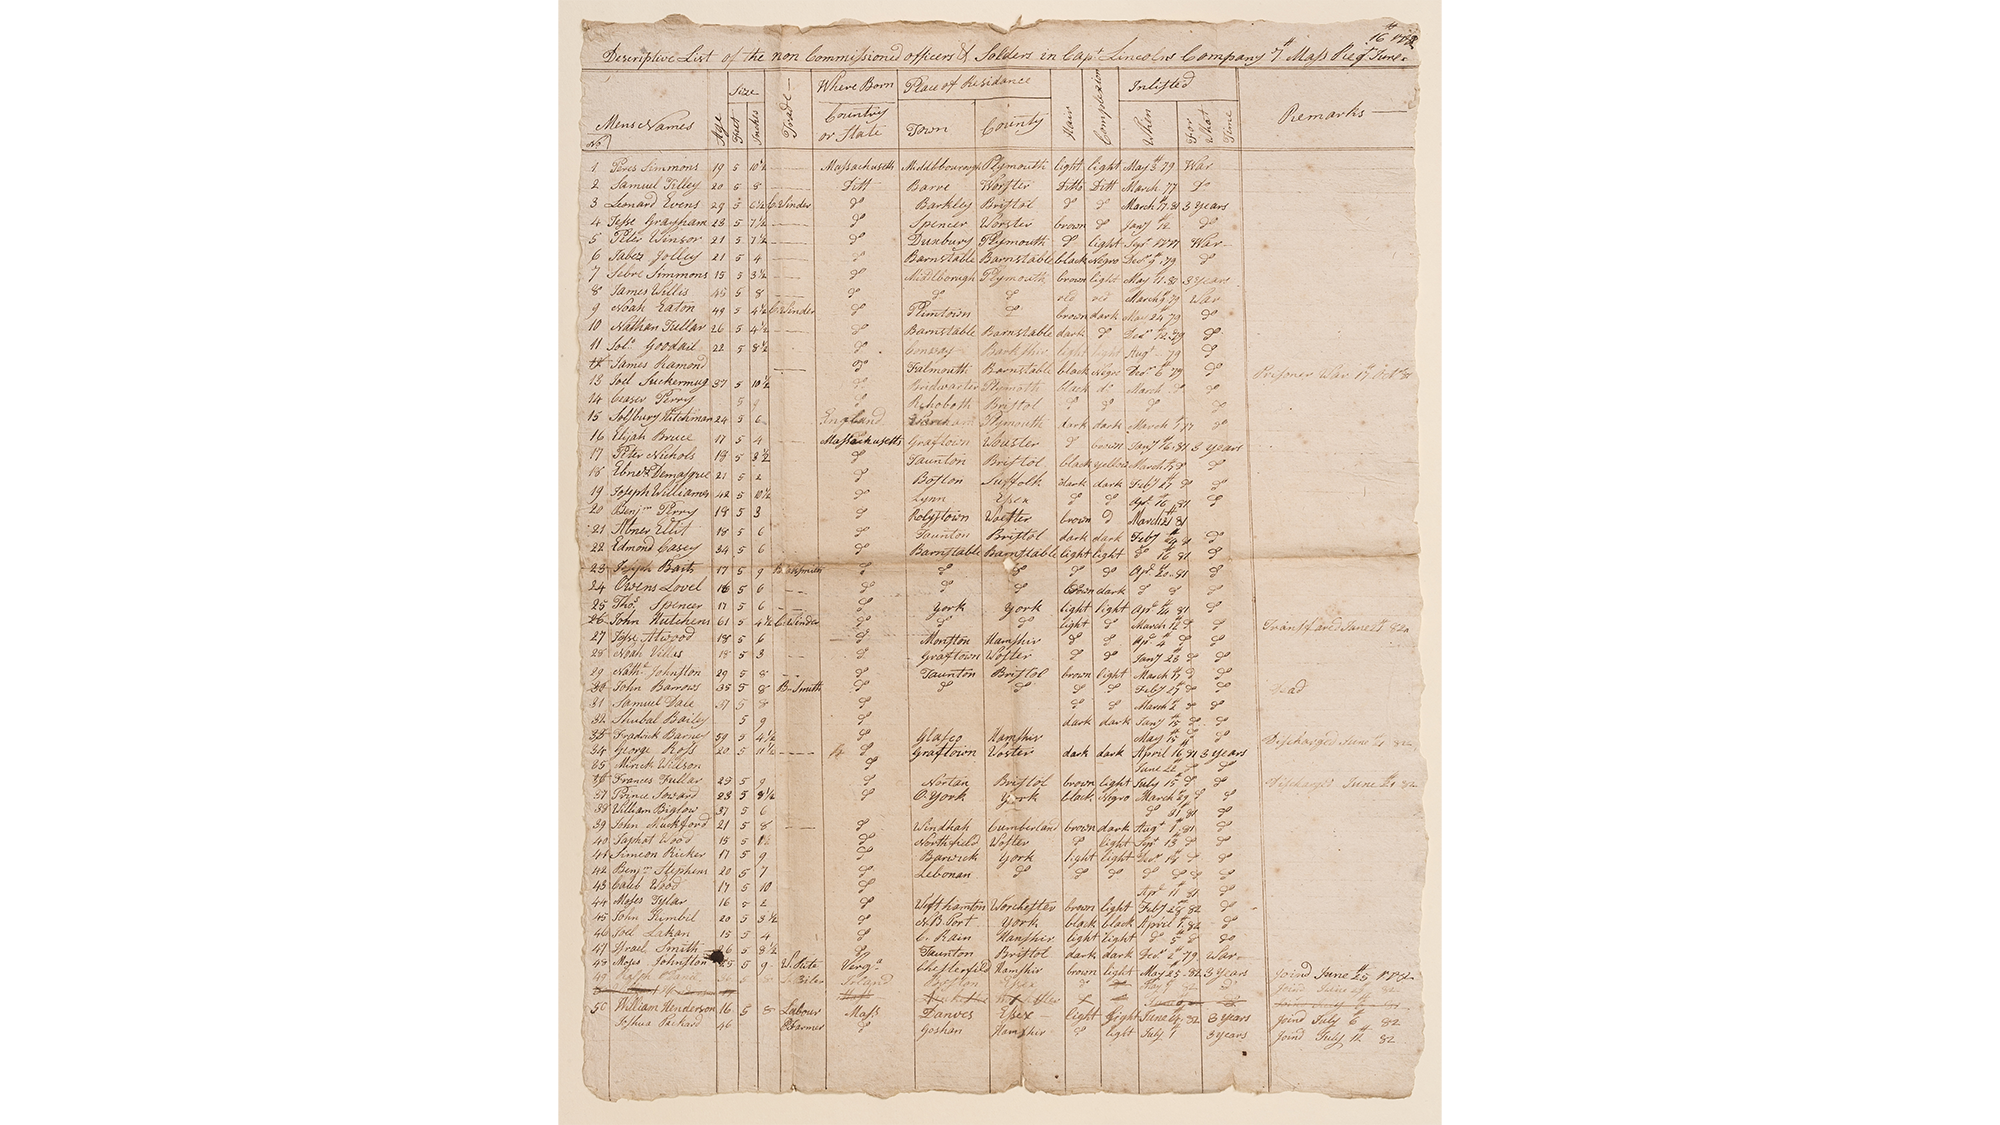 16th 1782
Descriptive List of the non Commissioned officers & Solders in Capt Lincolns Company 7th Mass Regt June
Mens Names Age Size Trade Where Born Place of Residance Hair Complexion Inlisted Remarks
No. Feet Inches Country or State Town County When For What Time
1 Peres Simmons 19 5 10½ Massachusetts Middlbourough Plymouth light light May 3 79 War
2 Samuel Tilley 20 5 8 Ditt Barre Worster Ditto Ditt March 77 Do
3 Leonard Evens 29 5 6½ C. Winder do Barkley Bristol do do March 17 81 3 Years
4 Jesse Grasham 23 5 7½ do Spencer Worster brown do Jany 12 do
5 Peter Winsor 21 5 7½ do Duxbury Plymouth do light Sept War
6 Jabez Jolley 21 5 4 do Barnstable Barnstable black Negro Decr 9 79 do
7 Febre Simmons 15 5 3½ do Middlborogh Plymouth brown light May 11 81 3 Years
8 James Willis 45 5 8 do do do old old March 9 79 War
9 Noah Eaton 49 5 4½ C. Winder do Plimtown do brown dark May 24 79 do
10 Nathan Fullar 26 5 4½ do Barnstable Barnstable dark do Decr 12 79 do
11 Soln Goodail 22 5 8½ do Conway Barkshir light light Augt 79 do
12 James Ramond do Falmouth Barnstable black Negro Decr 6 79 do
13 Joel Suckermug 37 5 10½ do Bridwarter Plymoth black do March do do Prisoner War 17th Octr 81
14 Ceaser Perry 5 9 Rehoboth Bristol do do do do
15 Solsbury Hitchman 24 5 6 England Plymouth dark dark March 1 77 do
16 Elijah Bruce 17 5 4 Massachusetts Graftown Wouster do brown Jany 16 81 3 Years
17 Peter Nichols 18 5 3½ do Taunton Bristol black yellow March do
18 Ebnezr Demasque 21 5 2 do Boston Suffolk dark dark Feby 27 do do
19 Joseph Williams 42 5 10½ do Lynn Esex do do Apr 16 81 do
20 Benjn Perry 18 5 3 do Rolystown Woester brown d March 21 81
21 Abner Ellit 18 5 6 do Taunton Bristol dark dark Feby 4 81 do
22 Edmond Casey 34 5 6 do Barnstable Barnstable light light do 16 81 do
23 Joseph Baits 17 5 9 Blaksmith do do do do do Apr 20 81 do
24 Owens Lovel 16 5 6 do do do brown dark do do do
25 Thos Spencer 17 5 6 do York York light light Apr 24 81 do
26 John Hutchens 61 5 4½ C. Winder do do do light do March 12 do do Transffared June 21st 82
27 Jesse Atwood 18 5 6 do Monston Hamshir do do Apr 4 do do
28 Noah Villis 18 5 3 do Graftown Woster do do Jany 23 do do
29 Nathl Johnston 29 5 8 do Taunton Bristol brown light March 17 do do
30 John Barrows 35 5 8 B. Smith do do do do do Feby 27 do do Dead
31 Samuel Dale 37 5 8 do do do March 2 do do
32 Shubal Bailey 5 9 do dark dark Jany 15 do do
33 Fradrick Barnes 59 5 4½ do Glasco Hamshir May 15 do Discharged June 21 82
34 George Ross 20 5 11½ do Graftown Woster dark dark April 16 81 3 Years
35 Mirick Willson do June 22 do do
36 Frances Fullar 23 5 9 do Nortan Bristol brown light July 15 do do Discharged June 21 82
37 Prince Soward 23 5 3½ do O. York York black Negro March 29 do do
38 William Biglow 37 5 6 do 31 81 do
39 John Muckford 21 5 8 do Windhah Cumberland brown dark Augt 1 81 do
40 Japhat Wood 15 5 1½ do Northfield Woster do light Sept 13 do do
41 Simeon Ricker 17 5 9 do Barwick York light light Decr 14 do do
42 Benjn Stephens 20 5 7 do Lebonan do do do do do do
43 Caleb Wood 17 5 10 do Apr 11 81 do
44 Moses Tylar 16 5 2 do Westhamton Worchester brown light Feby 28 82 do
45 John Kimbil 20 5 3½ do A.B. Port York black black April 1 82 do
46 Joel Lakan 15 5 4 do C. Rain Hamshir light light do 5 do do
47 Israel Smith 26 5 8½ do Taunton Bristol dark dark Decr 2d 79 War
48 Moses Johnston 25 5 9 Verga Chesterfild Hamshir brown light May 25 82 3 Years Joind June 25 1782
49 Joseph 5 8 Ireland Boston Esex do do Joind June 29 82
50 William Henderson 16 5 8 Labour Mass Danves Esex light light June 4 82 3 Years Joind July 6th 82
Joshua Packard 46 Farmer do Goshan Hamshir do light July 1 3 Years Joind July 14 82